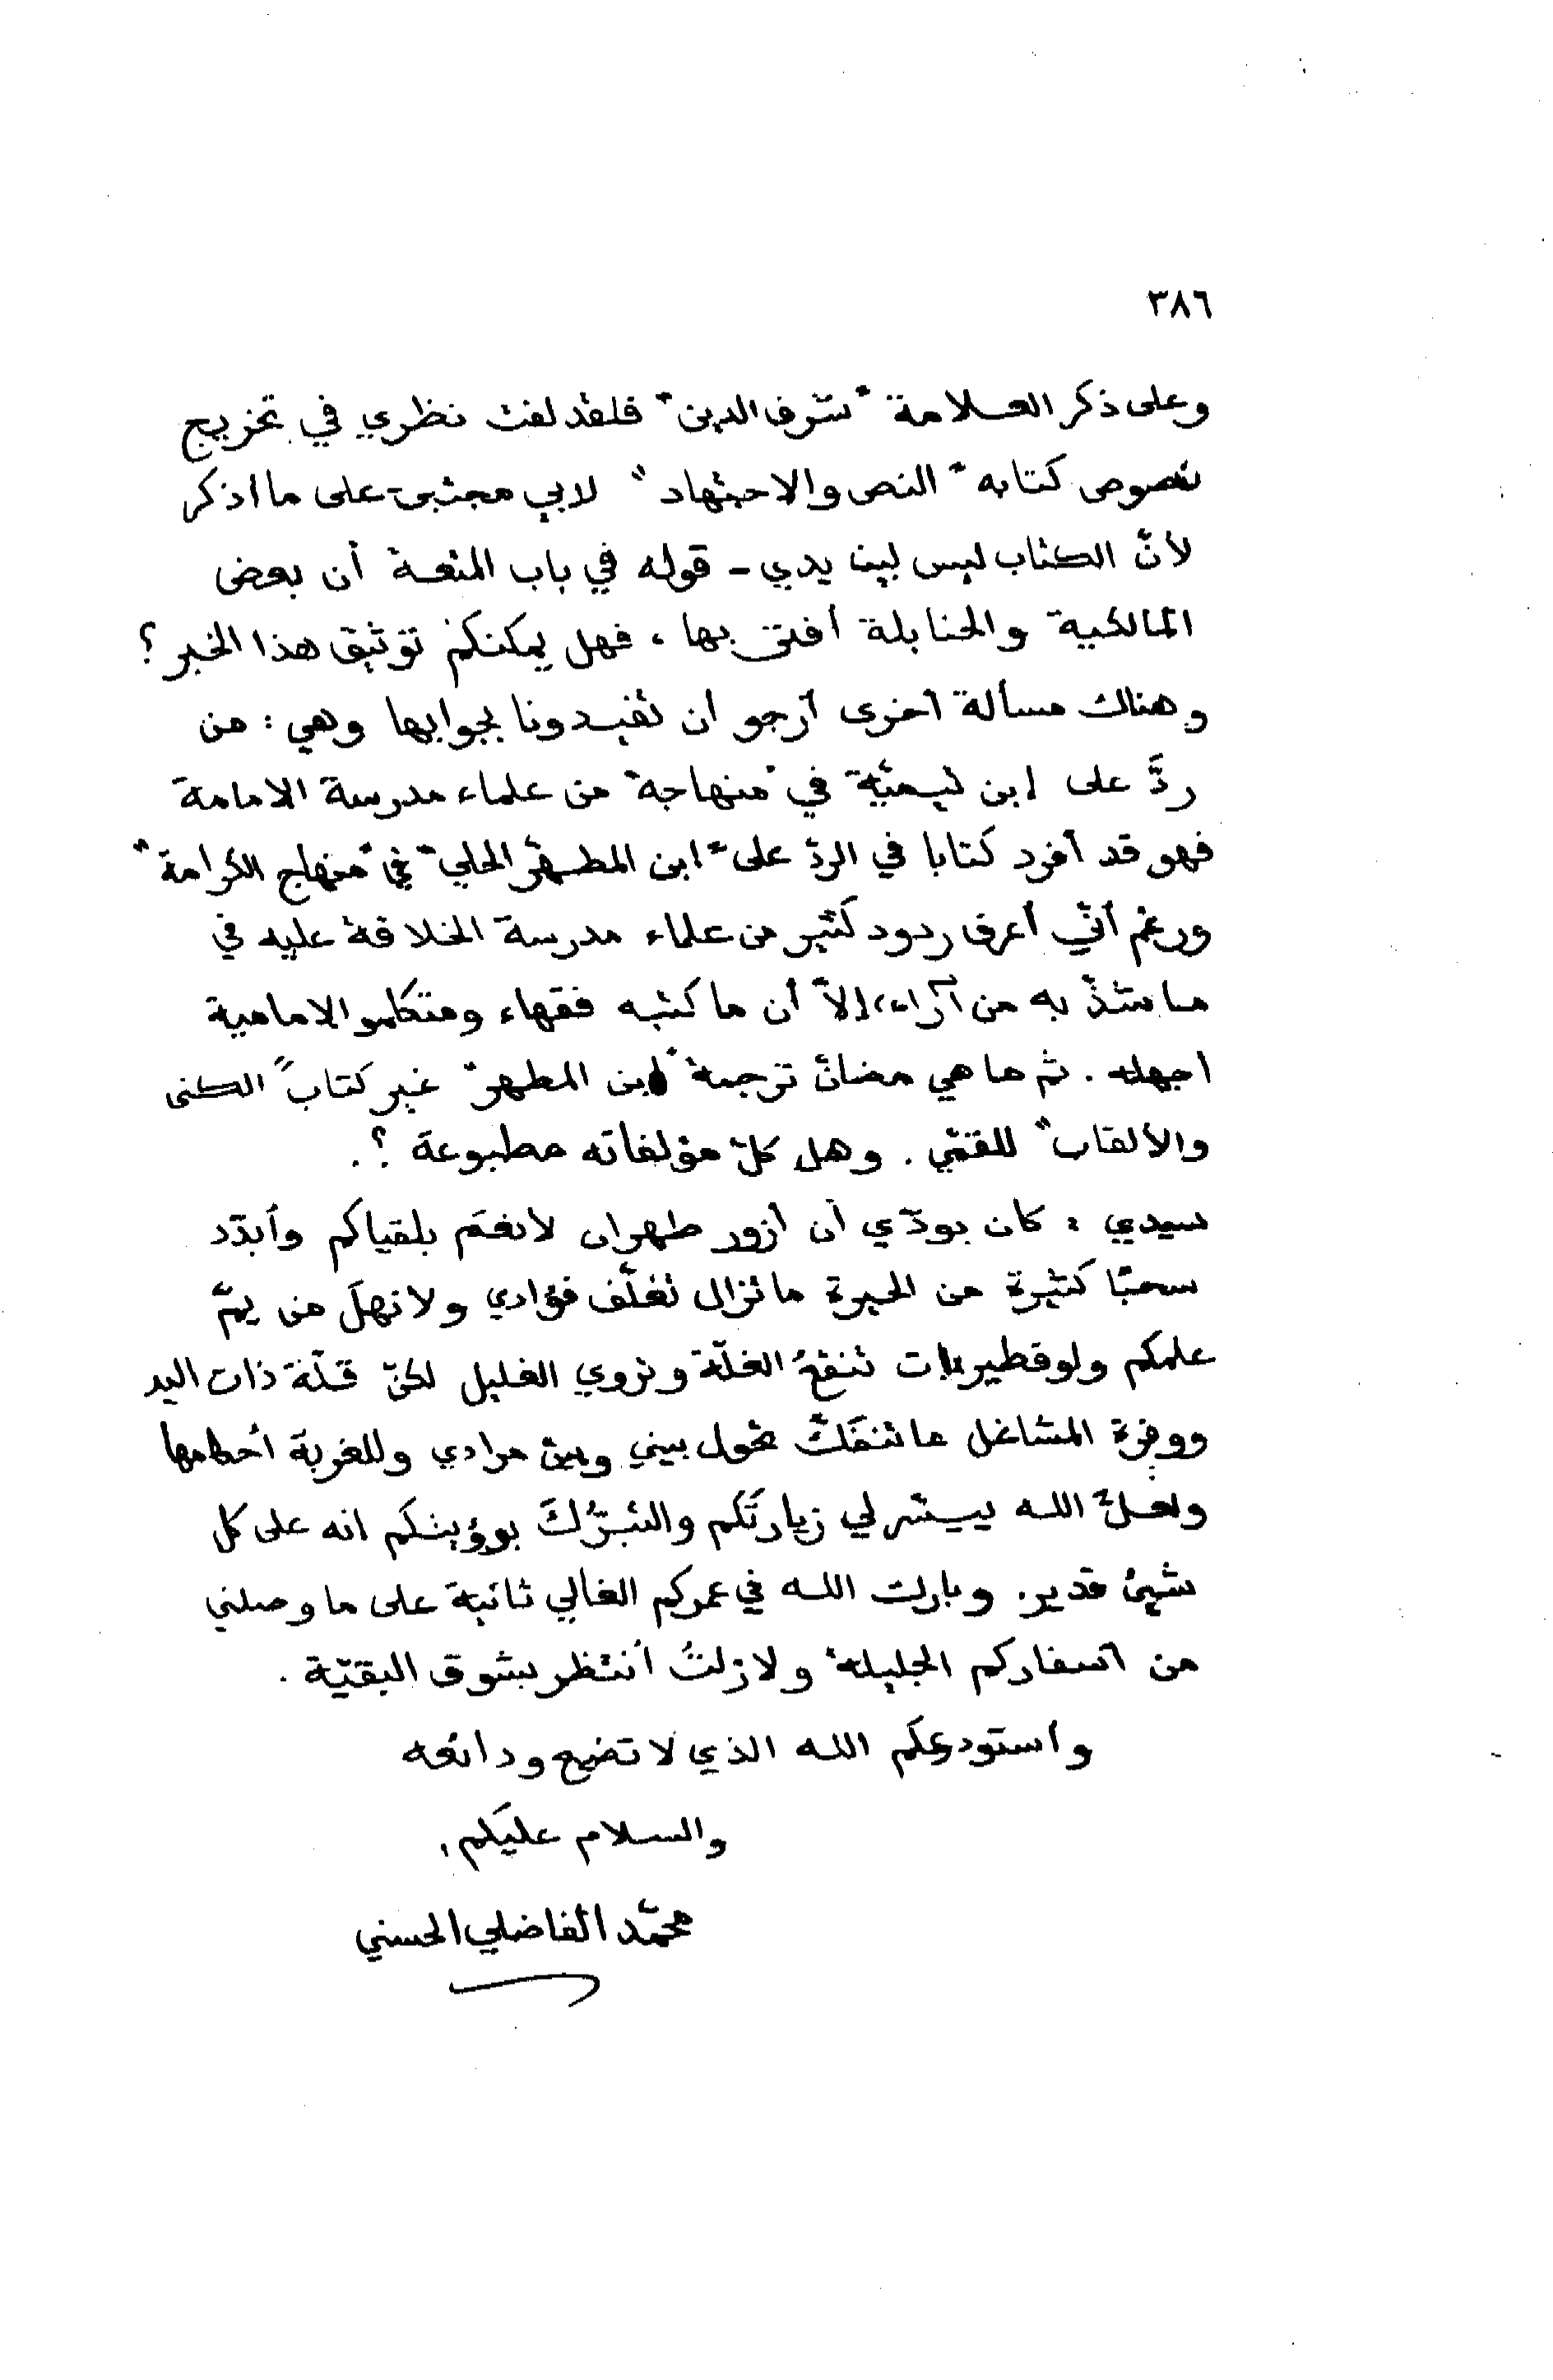 ٣٨٦
وعلى ذكر العلامة "شرف الدين" فلقد لفت نظري في تخريج
نصوص كتابه "النص والاجتهاد" لابي مجتبى على ما اذكر
لأنّ الكتاب ليس بين يدي - قوله في باب المتعة أن بعض
المالكية والحنابلة أفتى بها، فهل يمكنكم توثيق هذا الخبر؟
وهناك مسألة أخرى أرجو ان تفيدونا بجوابها وهي: من
ردَّ على ابن تيميّة في "منهاجه" من علماء مدرسة الامامة
فهو قد أفرد كتابا في الردّ على "ابن المطهّر الحلي" في "منهاج الكرامة"
ورغم أنّي أعرف ردود كثير من علماء مدرسة الخلافة عليه في
ما شذّ به من آراء، إلاّ أن ما كتبه فقهاء ومتكلمو الامامية
اجهله. ثم ما هي مضانّ ترجمة "ابن المطهر" غير كتاب "الكنى
والألقاب" للقمّي. وهل كلّ مؤلفاته مطبوعة؟.
سيدي: كان بودّي أن أزور طهران لأنعَم بلقياكم وأبدّد
سحبًا كثيرة من الحيرة ما تزال تغلّف فؤادي ولأنهلَ من يمّ
علمكم ولو قطيرات تنقعُ الغلّة وتروي الغليل لكنّ قلّة ذات اليد
ووفرة المشاغل ما تنفَكّ تحول بيني وبين مرادي وللغربة أحكامها
ولعلّ الله ييسّر لي زيارتَكم والتبرُّكَ برؤيتكم انه على كل
شيئ قدير. وبارك الله في عمركم الغالي ثانية على ما وصلني
من أسفاركم الجليلة ولا زلتُ أنتظر بشوق البقيّة.
وأستودعكم الله الذي لا تضيع ودائعه
والسلام عليكم،
محمّد الفاضلي الحسني